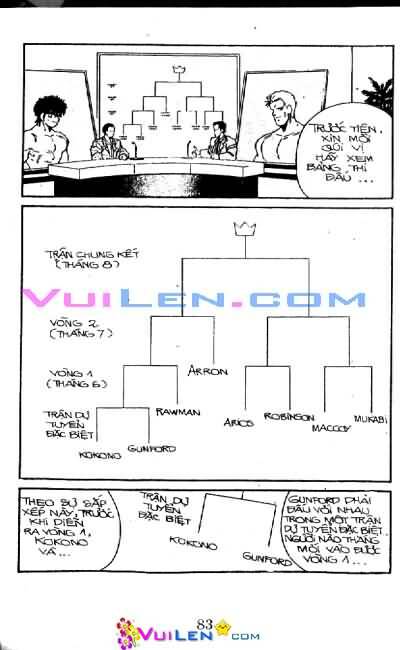 TRƯỚC TIÊN,
XIN MỜI
QÚI VỊ
HÃY XEM
BẢNG THI
ĐẤU...
TRẬN CHUNG KẾT
(THÁNG 8)
VUILEN.COM
VÒNG 2
(THÁNG 7)
ARRON
VÒNG 1
(THÁNG 6)
TRẬN DỰ
TUYỂN
ĐẶC BIỆT
RAWMAN
ARIOS
ROBINSON
MACCOY
MUKABI
KOKONO
GUNFORD
THEO SỰ SẮP
XẾP NÀY, TRƯỚC
KHI DIỄN
RA VÒNG 1,
KOKONO
VÀ...
TRẬN DỰ
TUYỂN
ĐẶC BIỆT
KOKONO
GUNFORD
GUNFORD PHẢI
ĐẤU VỚI NHAU
TRONG MỘT TRẬN
DỰ TUYỂN ĐẶC BIỆT.
NGƯỜI NÀO THẮNG
MỚI VÀO ĐƯỢC
VÒNG 1...
83
VUILEN.COM